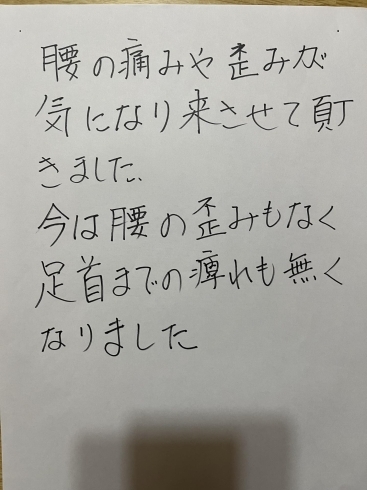 腰の痛みや歪みが
気になり来させて頂
きました、
今は腰の歪みもなく
足首までの痺れも無く
なりました